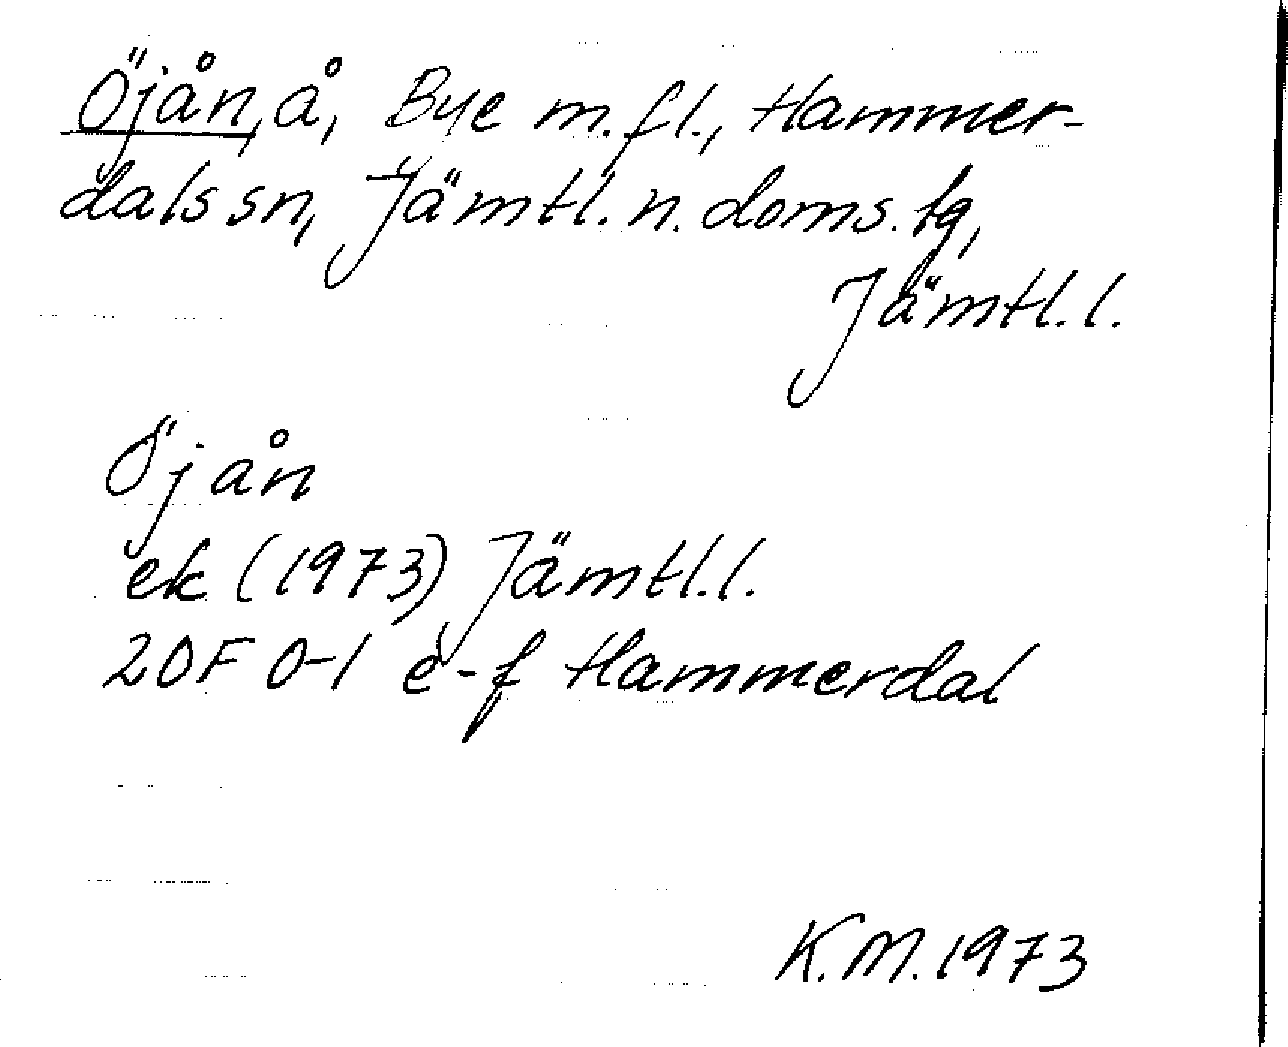 Öjån, å, Bye m.fl., Hammer-
dals sn, Jämtl. n. doms. tg,
Jämtl. l.
Öjån
ek (1973) Jämtl. l.
20F 0-1 e-f Hammerdal
K.M. 1973